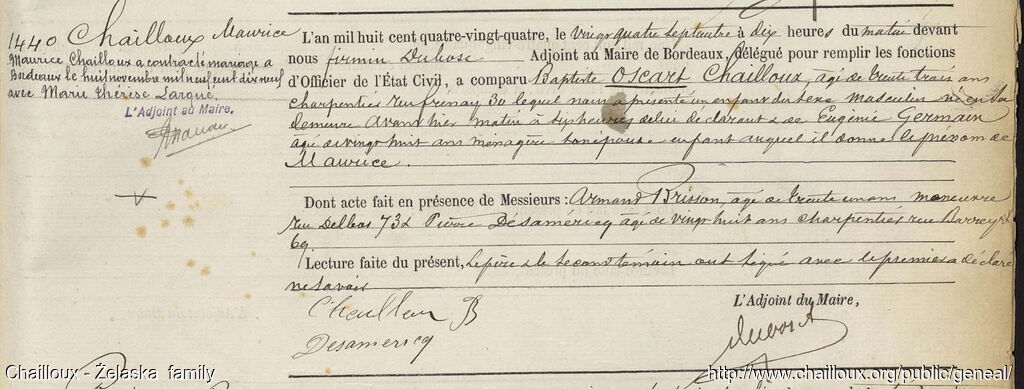 1440 Chailloux Maurice
Maurice Chailloux a contracté mariage a
Bordeaux le huit novembre mil neuf cent dix neuf
avec Marie Thérèse Larqué.
L'Adjoint au Maire,
L'an mil huit cent quatre-vingt-quatre, le vingt quatre septembre à dix heures du matin devant
nous firmin Dubosc Adjoint au Maire de Bordeaux, délégué pour remplir les fonctions
d'Officier de l'État Civil, a comparu Baptiste Oscart Chailloux, agé de trente trois ans
charpentier rue frénay 30 lequel nous a présenté un enfant du sexe masculin né en sa
demeure avant hier matin à six heures de lui déclarant & de Eugénie Germain
agé de vingt huit ans ménagère son épouse enfant auquel il donne le prénom de
Maurice.
Dont acte fait en présence de Messieurs : Armand Brisson, agé de trente un ans manœuvre
rue Delbos 73 & Pierre Désaméricq agé de vingt huit ans charpentier rue Barreyre
69.
Lecture faite du présent, le père & le second témoin ont signé avec le premier a déclaré
ne savoir
Chailloux B
Desamericq
L'Adjoint du Maire,
Dubosc
Chailloux - Żelaska family
http://www.chailloux.org/public/geneal/